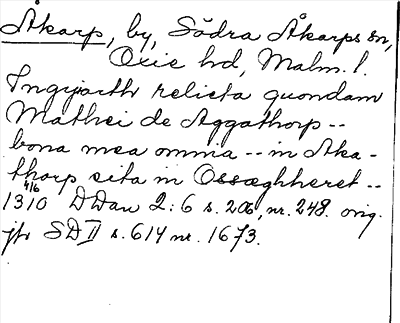 Åkarp, by, Södra Åkarps sn,
Oxie hd, Malm. l.
Ingyarth relicta quondam
Mathei de Aggathorp --
bona mea omnia -- in Aka-
thorp sita in Ossæghheret --
1310 4/6 DDan 2:6 s. 206, nr. 248. orig.
jfr SD II s. 614 nr. 1673.